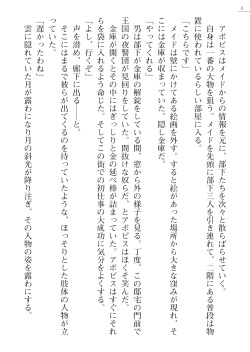 アポピスはメイドからの情報を元に、部下たちを次々と散らばらせていく。
自身は一番の大物を狙う。メイドを先頭に部下三人を引き連れて、二階にある普段は物
置に使われているらしい部屋に入る。
「こちらです」
メイドは壁にかけてある絵画を外す。すると絵があった場所から大きな窪みが現れ、そ
こには金庫が収まっていた。隠し金庫だ。
「やってくれる」
男は部下が金庫の解錠をしている間、窓から外の様子を見る。丁度、この邸宅の門前で
王国の夜警団が見回りをしていた。間抜けな奴らだ、とアポピスはほくそ笑んだ。
金庫が開くとその中にはぎっしりと金の延べ棒が詰まっていた。アポピスはすぐにそれ
らを袋に入れるよう命じた。そしてこの世界での初仕事の大成功に気分をよくする。
「よし、行くぞ」
声を潜め、廊下に出る――と。
そこにはまるで彼らが出てくるのを待っていたような、ほっそりとした肢体の人物が立
っていた。
「遅かったわね」
雲に隠れていた月が露わになり月の斜光が降り注ぎ、その人物の姿を露わにする。